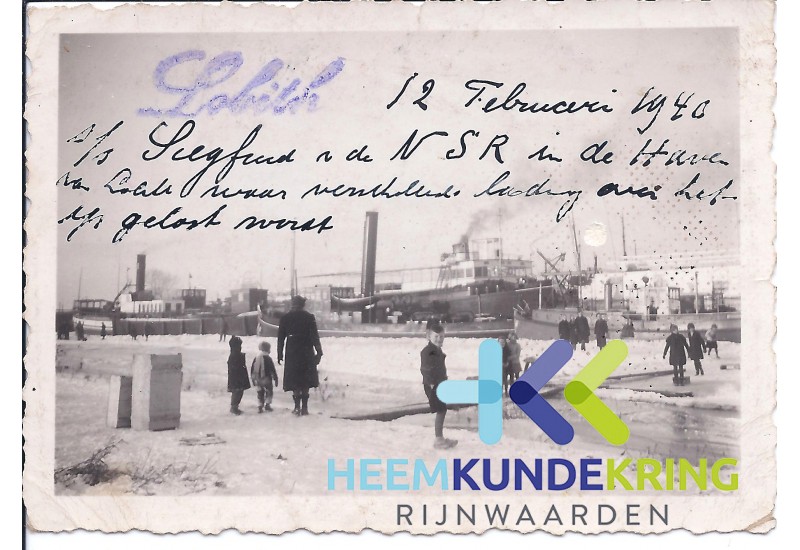 Lobith
12 Februari 1940
s/s Siegfried v de NSR in de Haven
van Lobith waar verschillende lading over het
ijs gelost wordt
HEEMKUNDEKRING
RIJNWAARDEN